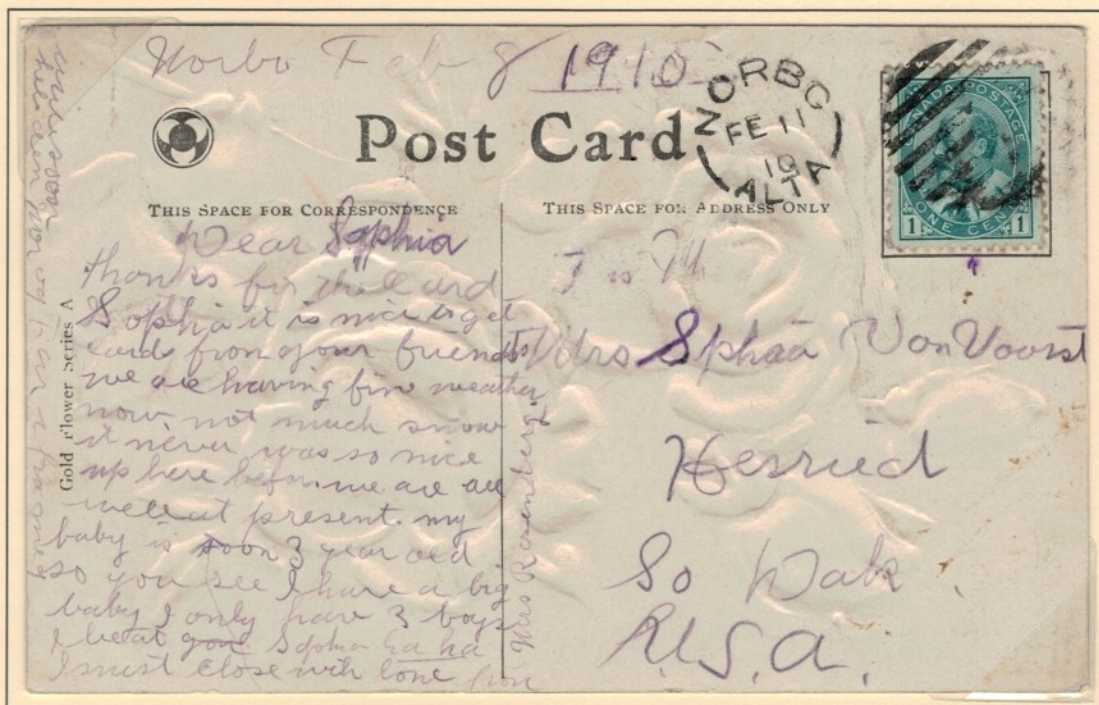 Norbo Feb 8 1910
NORBO
FE 11
10
ALTA
CANADA POSTAGE
ONE CENT
1 1
Post Card
THIS SPACE FOR CORRESPONDENCE
THIS SPACE FOR ADDRESS ONLY
Dear Sophia
thanks for the card
Sophia it is nice to get
cards from your friends
we are having fine weather
now not much snow
it never was so nice
up here before. we are all
well at present. my
baby is soon 3 year old
so you see I have a big
baby I only have 3 boys
I beat you Sophia ha ha
I must close with love from
Mrs Rosenberg
Gold Flower Series A
Mrs Sphaa VonVoorst
Herried
So Dak.
U.S.A.